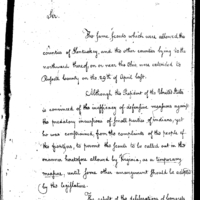 Sir.
The same scouts which were allowed the
counties of Kentuckey, and the other counties lying to the
northward thereof, on or near the Ohio was extended to
County, on the 29th of April last.
Although the President of the United States
is convinced of the inefficacy of defensive measures against
the predatory incursions of small parties of Indians, yet
he was constrained, from the complaints of the people of
the frontiers, to permit the scouts to be called out in the
manner heretofore allowed by Virginia, as a temporary
measure, until some other arrangement should be adopted
by the Legislature.
The result of the deliberations of Congress